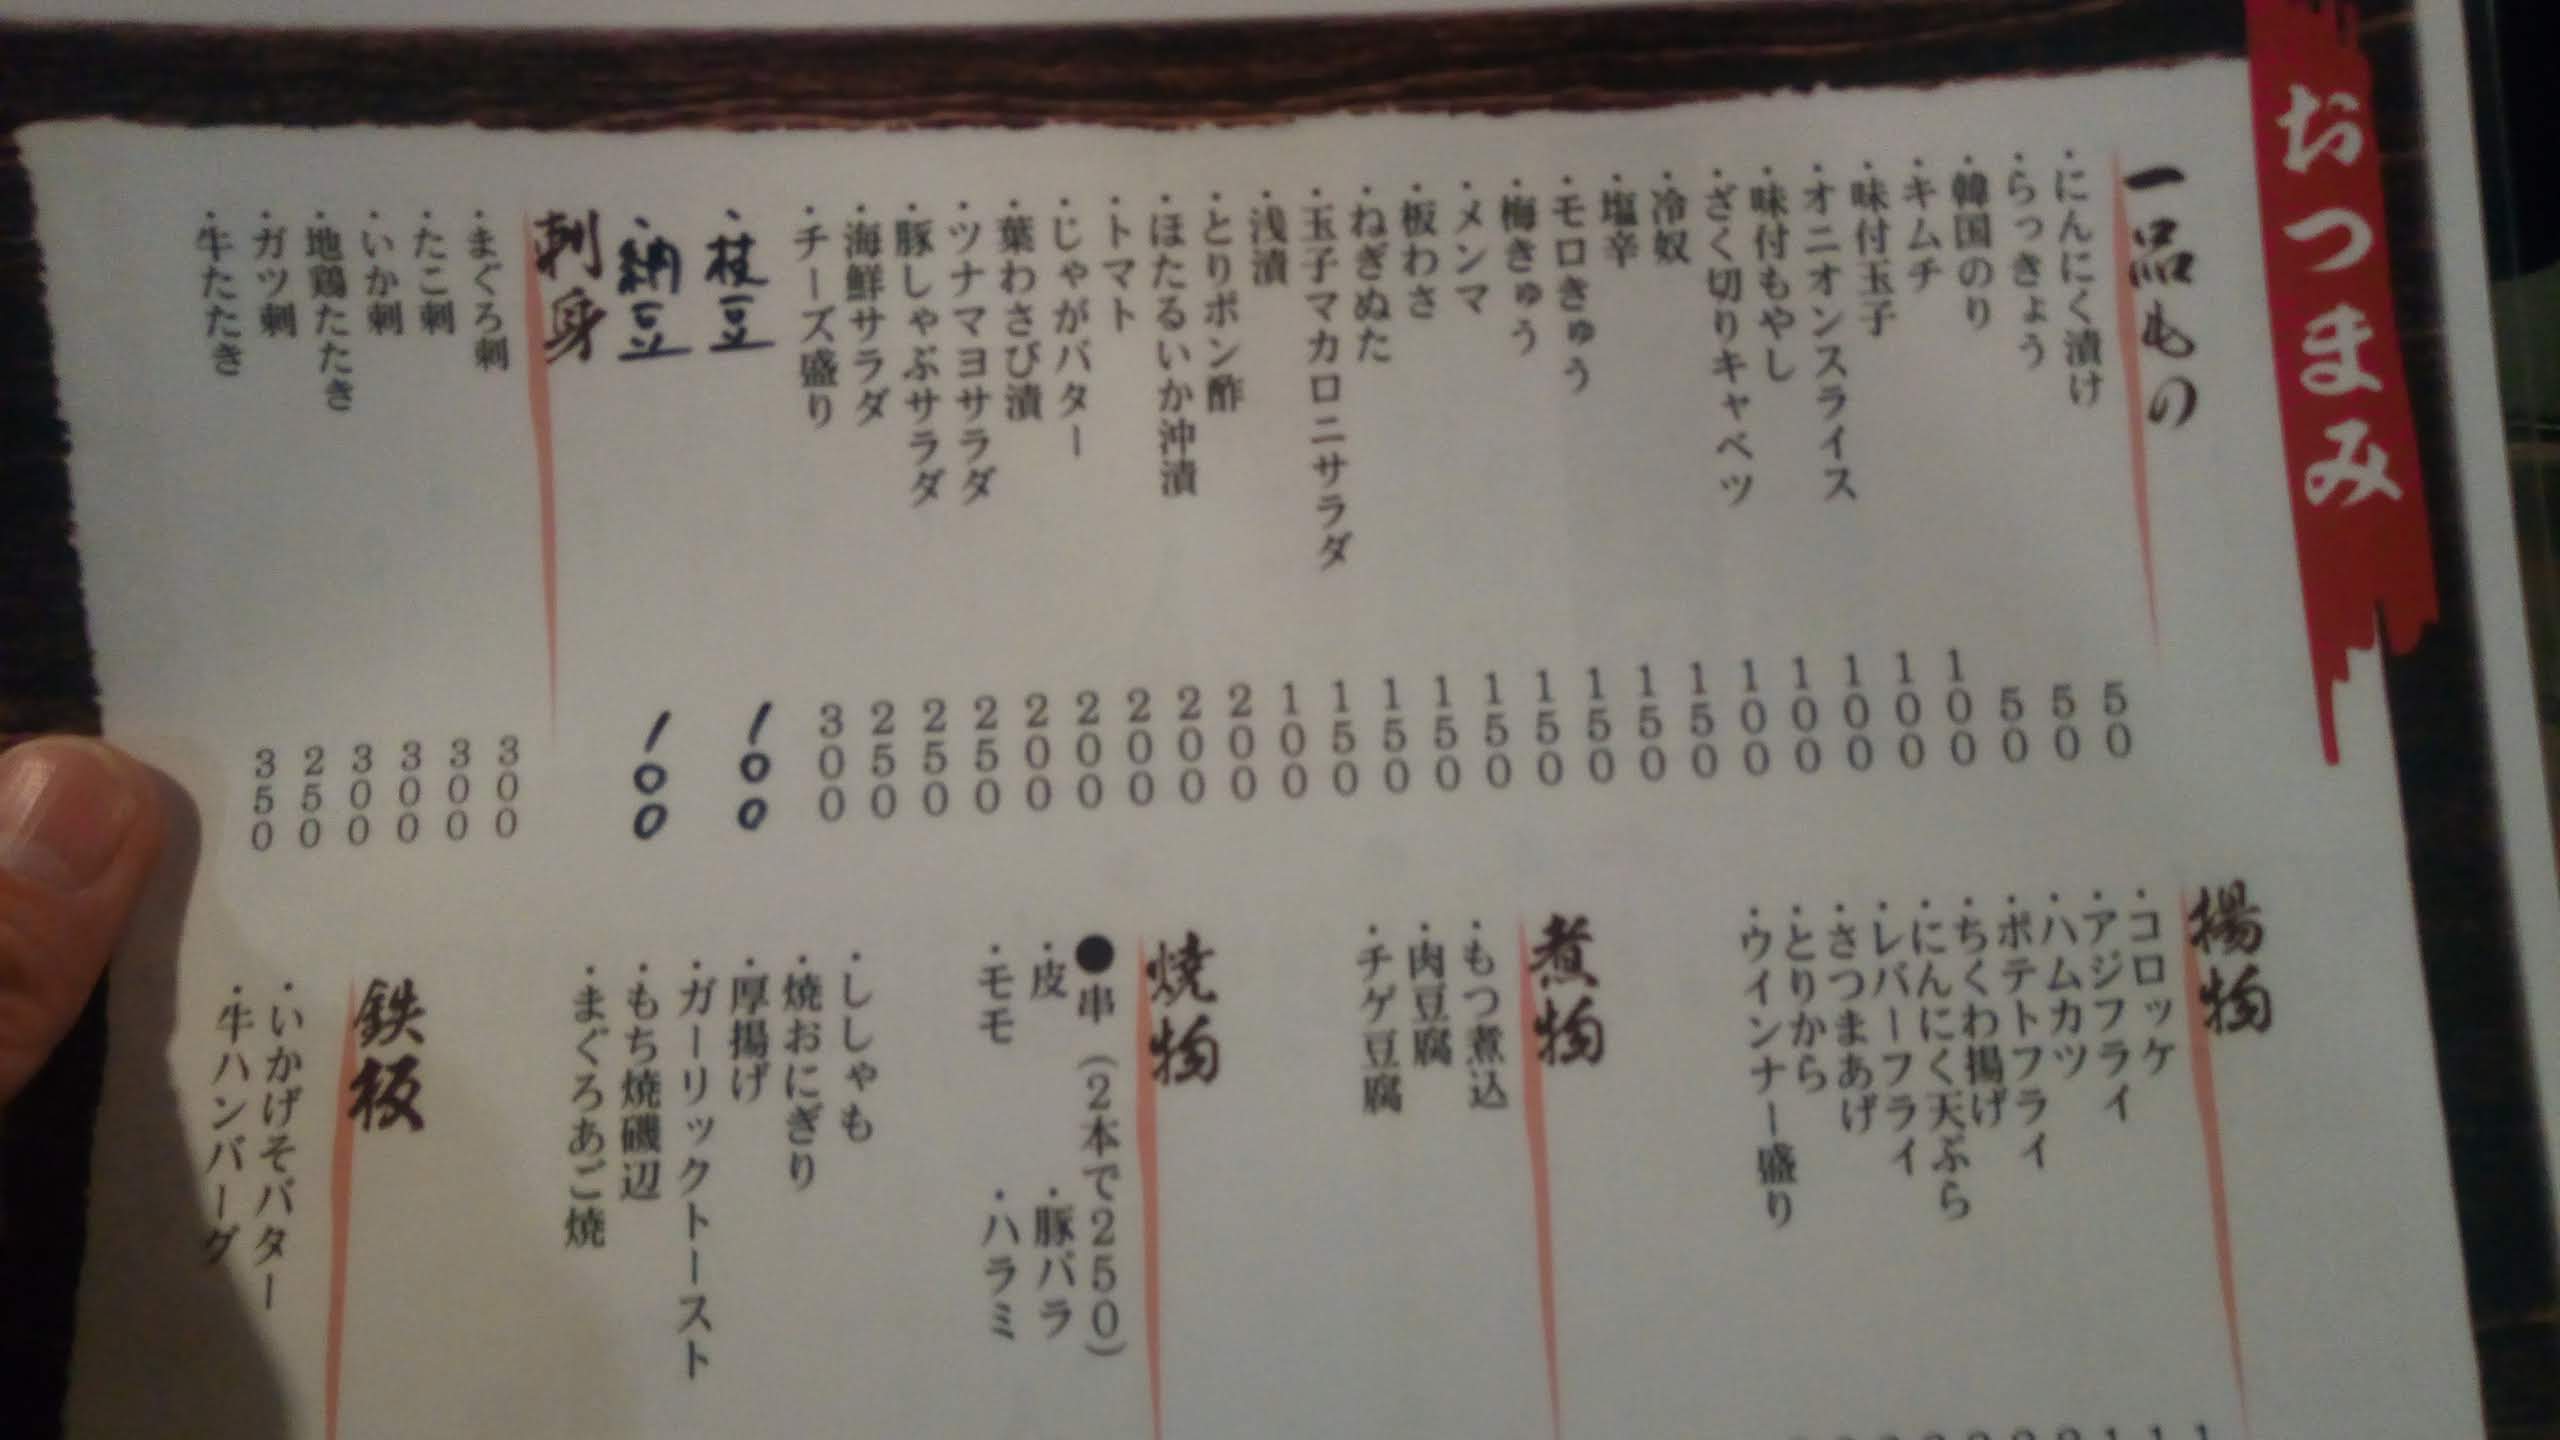 おつまみ
一品もの
・にんにく漬け 50
・らっきょう 50
・韓国のり 50
・キムチ 100
・味付玉子 100
・オニオンスライス 100
・味付もやし 100
・ざく切りキャベツ 100
・冷奴 150
・塩辛 150
・モロきゅう 150
・梅きゅう 150
・メンマ 150
・板わさ 150
・ねぎぬた 150
・玉子マカロニサラダ 150
・浅漬 100
・とりポン酢 200
・ほたるいか沖漬 200
・トマト 200
・じゃがバター 200
・葉わさび漬 200
・ツナマヨサラダ 250
・豚しゃぶサラダ 250
・海鮮サラダ 250
・チーズ盛り 300
・枝豆 100
・納豆 100
刺身
・まぐろ刺 300
・たこ刺 300
・いか刺 300
・地鶏たたき 300
・ガツ刺 250
・牛たたき 350
揚物
・コロッケ
・アジフライ
・ハムカツ
・ポテトフライ
・ちくわ揚げ
・にんにく天ぷら
・レバーフライ
・さつまあげ
・とりから
・ウインナー盛り
煮物
・もつ煮込
・肉豆腐
・チゲ豆腐
焼物
●串（2本で250）
・皮 ・豚バラ
・モモ ・ハラミ
・ししゃも
・焼おにぎり
・厚揚げ
・ガーリックトースト
・もち焼磯辺
・まぐろあご焼
鉄板
・いかげそバター
・牛ハンバーグ